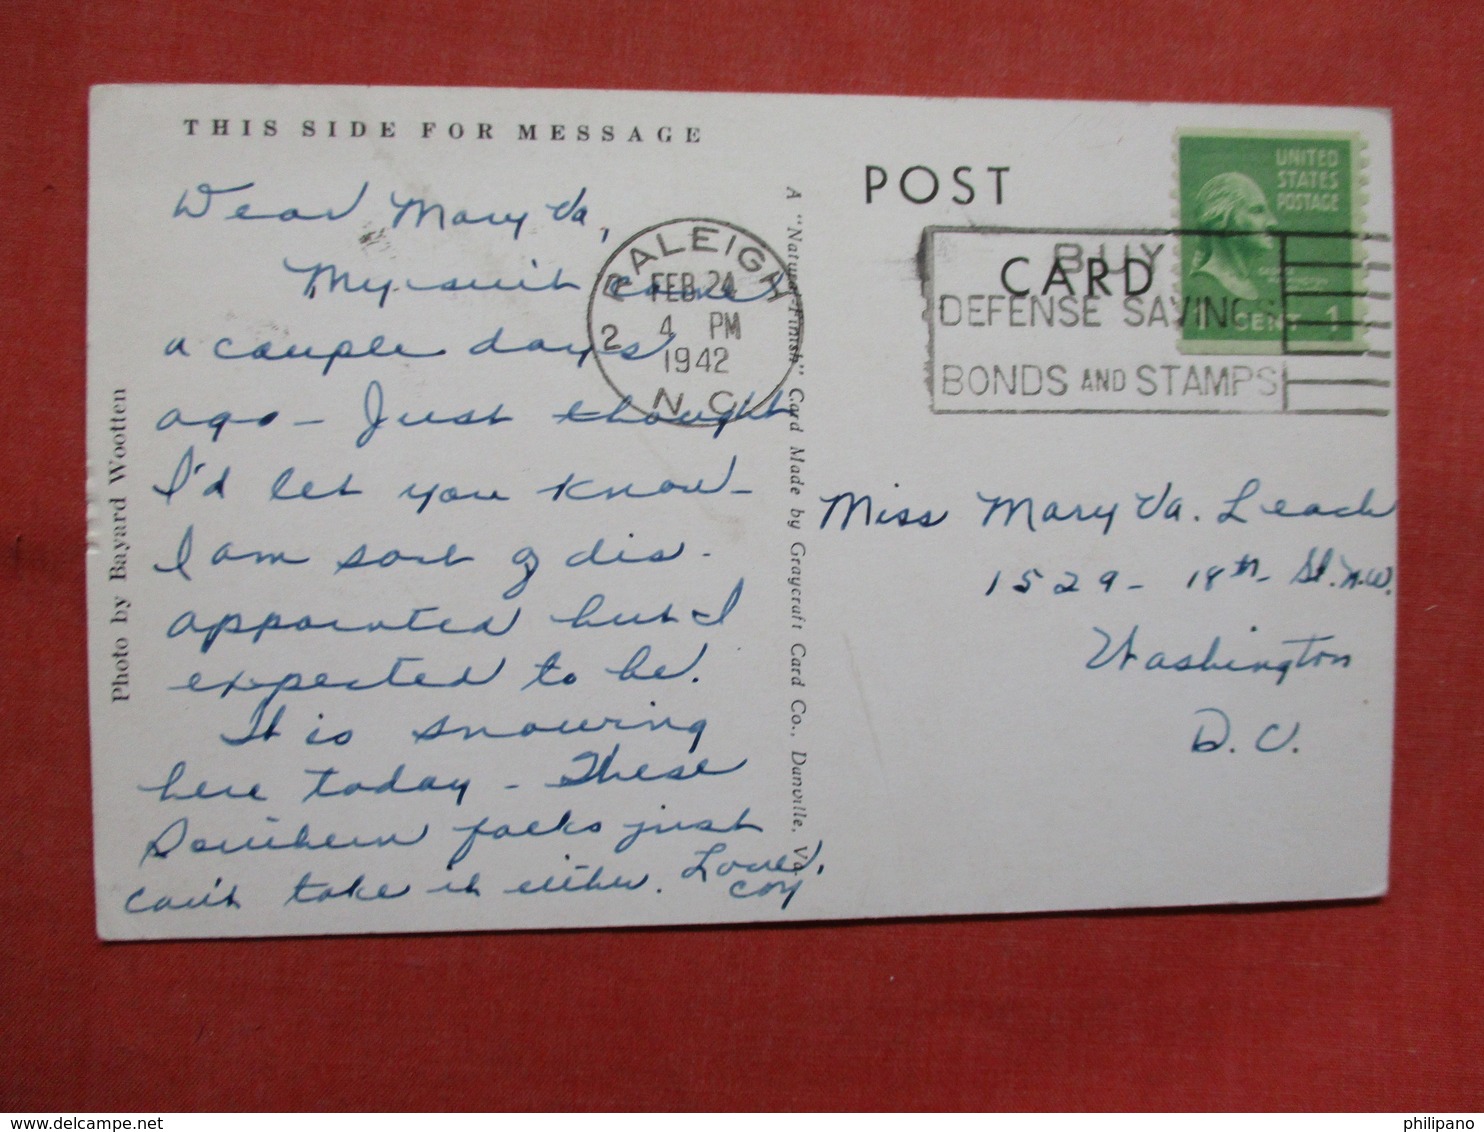 THIS SIDE FOR MESSAGE
Dear Mary Va,
My suit came
a couple days
ago - Just thought
I'd let you know -
I am sort of dis-
appointed but I
expected to be.
It is snowing
here today - These
Southern folks just
can't take it either. Love,
Coy
Photo by Bayard Wootten
A "Natural-Finish" Card Made by Graycraft Card Co., Danville, Va.
RALEIGH
FEB 24
4 PM
1942
N.C.
2
POST
CARD
BUY
DEFENSE SAVINGS
BONDS AND STAMPS
UNITED
STATES
POSTAGE
1 CENT 1
Miss Mary Va. Leach
1529 - 18th - St. N.W.
Washington
D.C.
www.delcampe.net
philipano